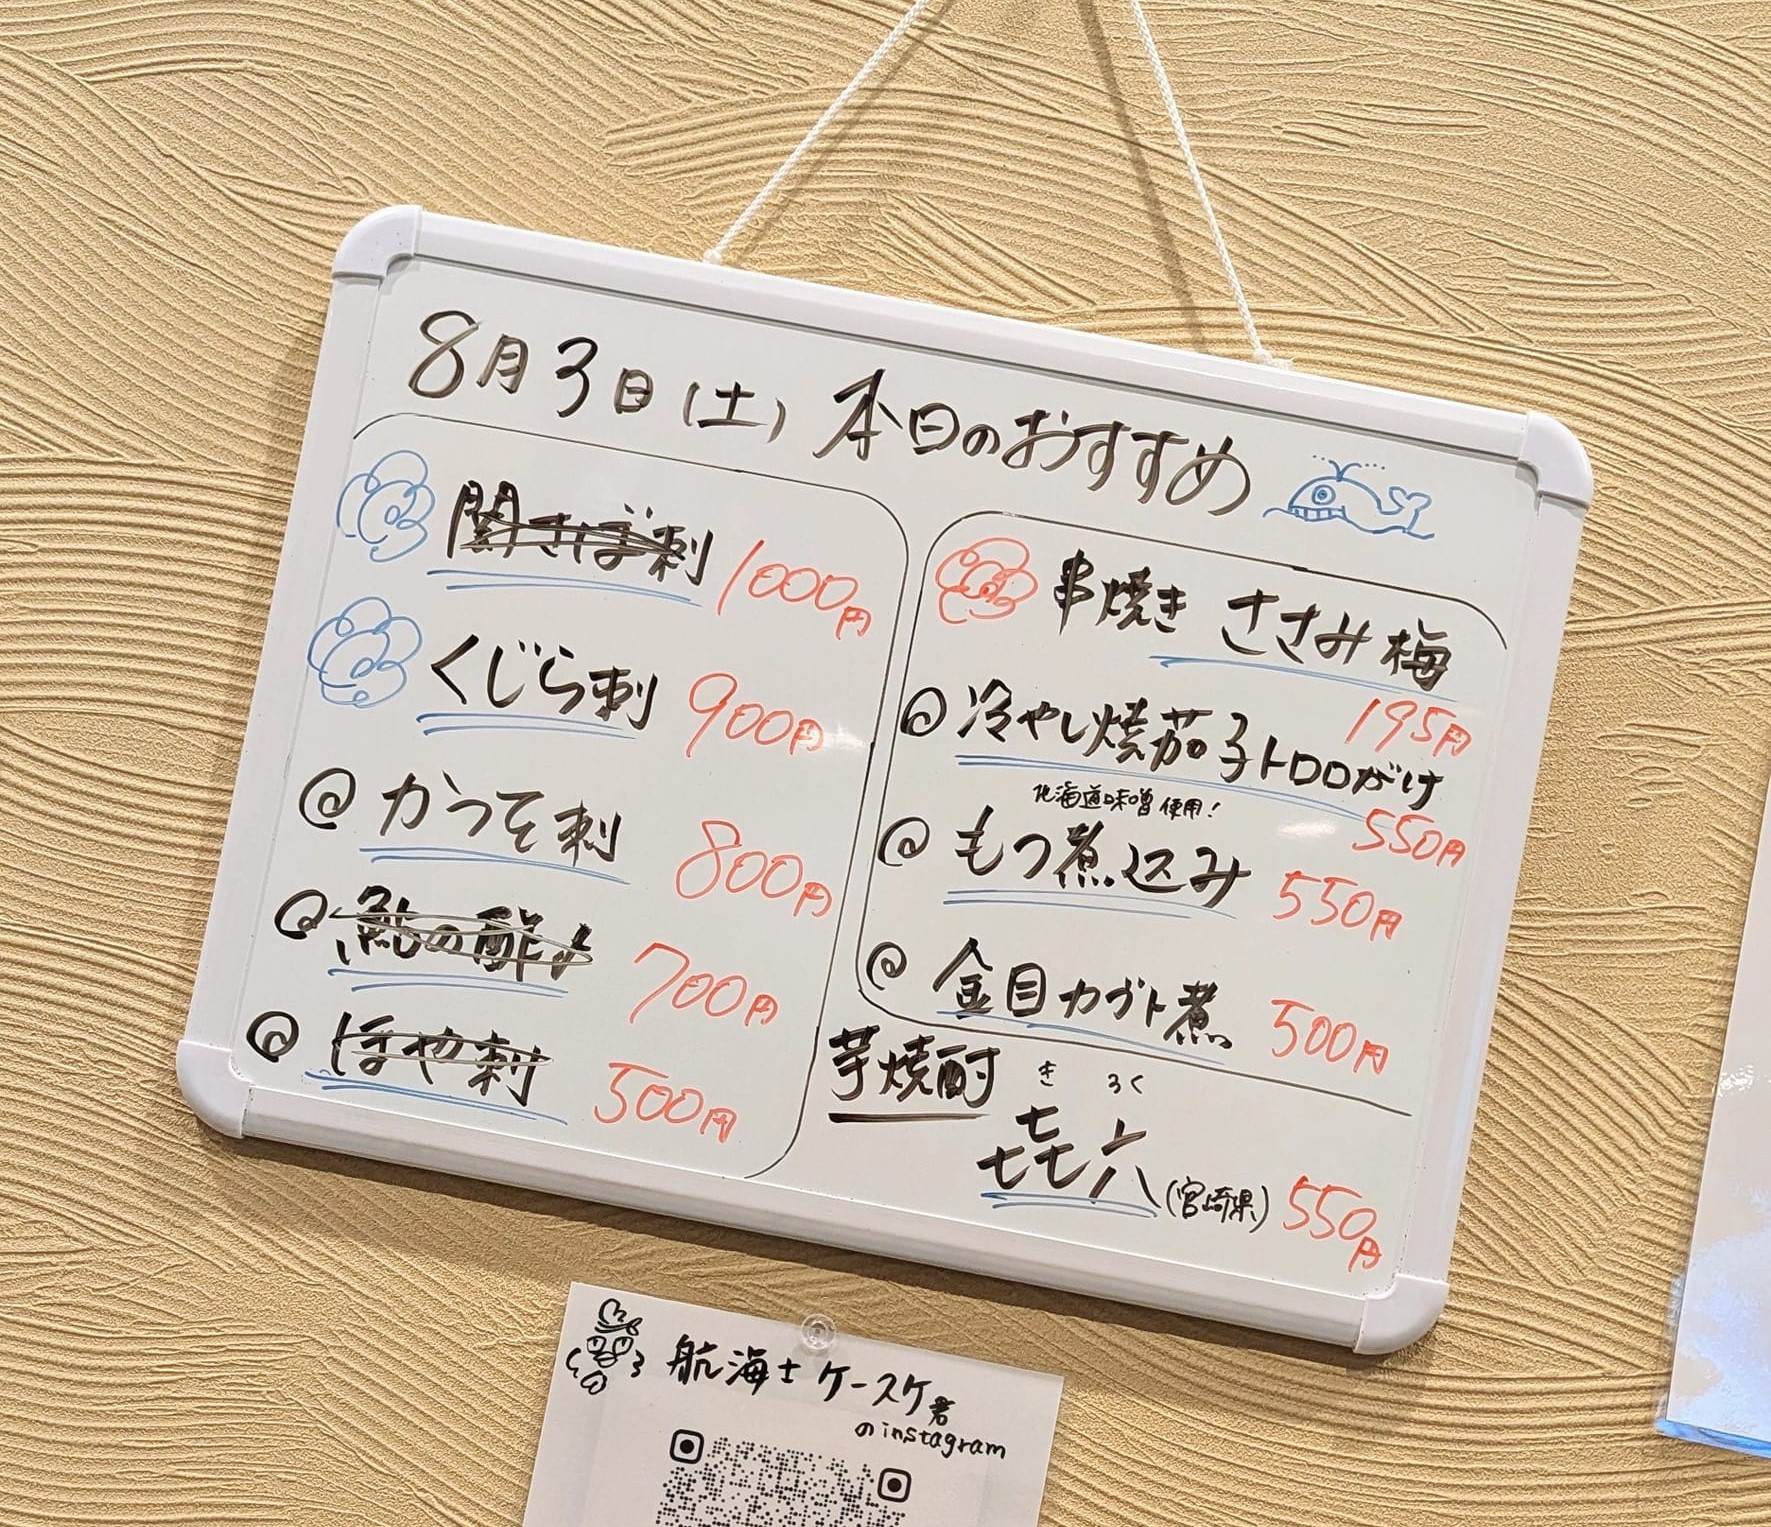 8月3日(土) 本日のおすすめ
関さば刺 1000円
くじら刺 900円
かつを刺 800円
鮎の酢〆 700円
ほや刺 500円
串焼き ささみ梅
195円
冷やし焼茄子トロロがけ
550円
北海道味噌使用!
もつ煮込み 550円
金目カブト煮 500円
芋焼酎
き ろく
㐂六 (宮崎県) 550円
航海士ケースケ君
のinstagram